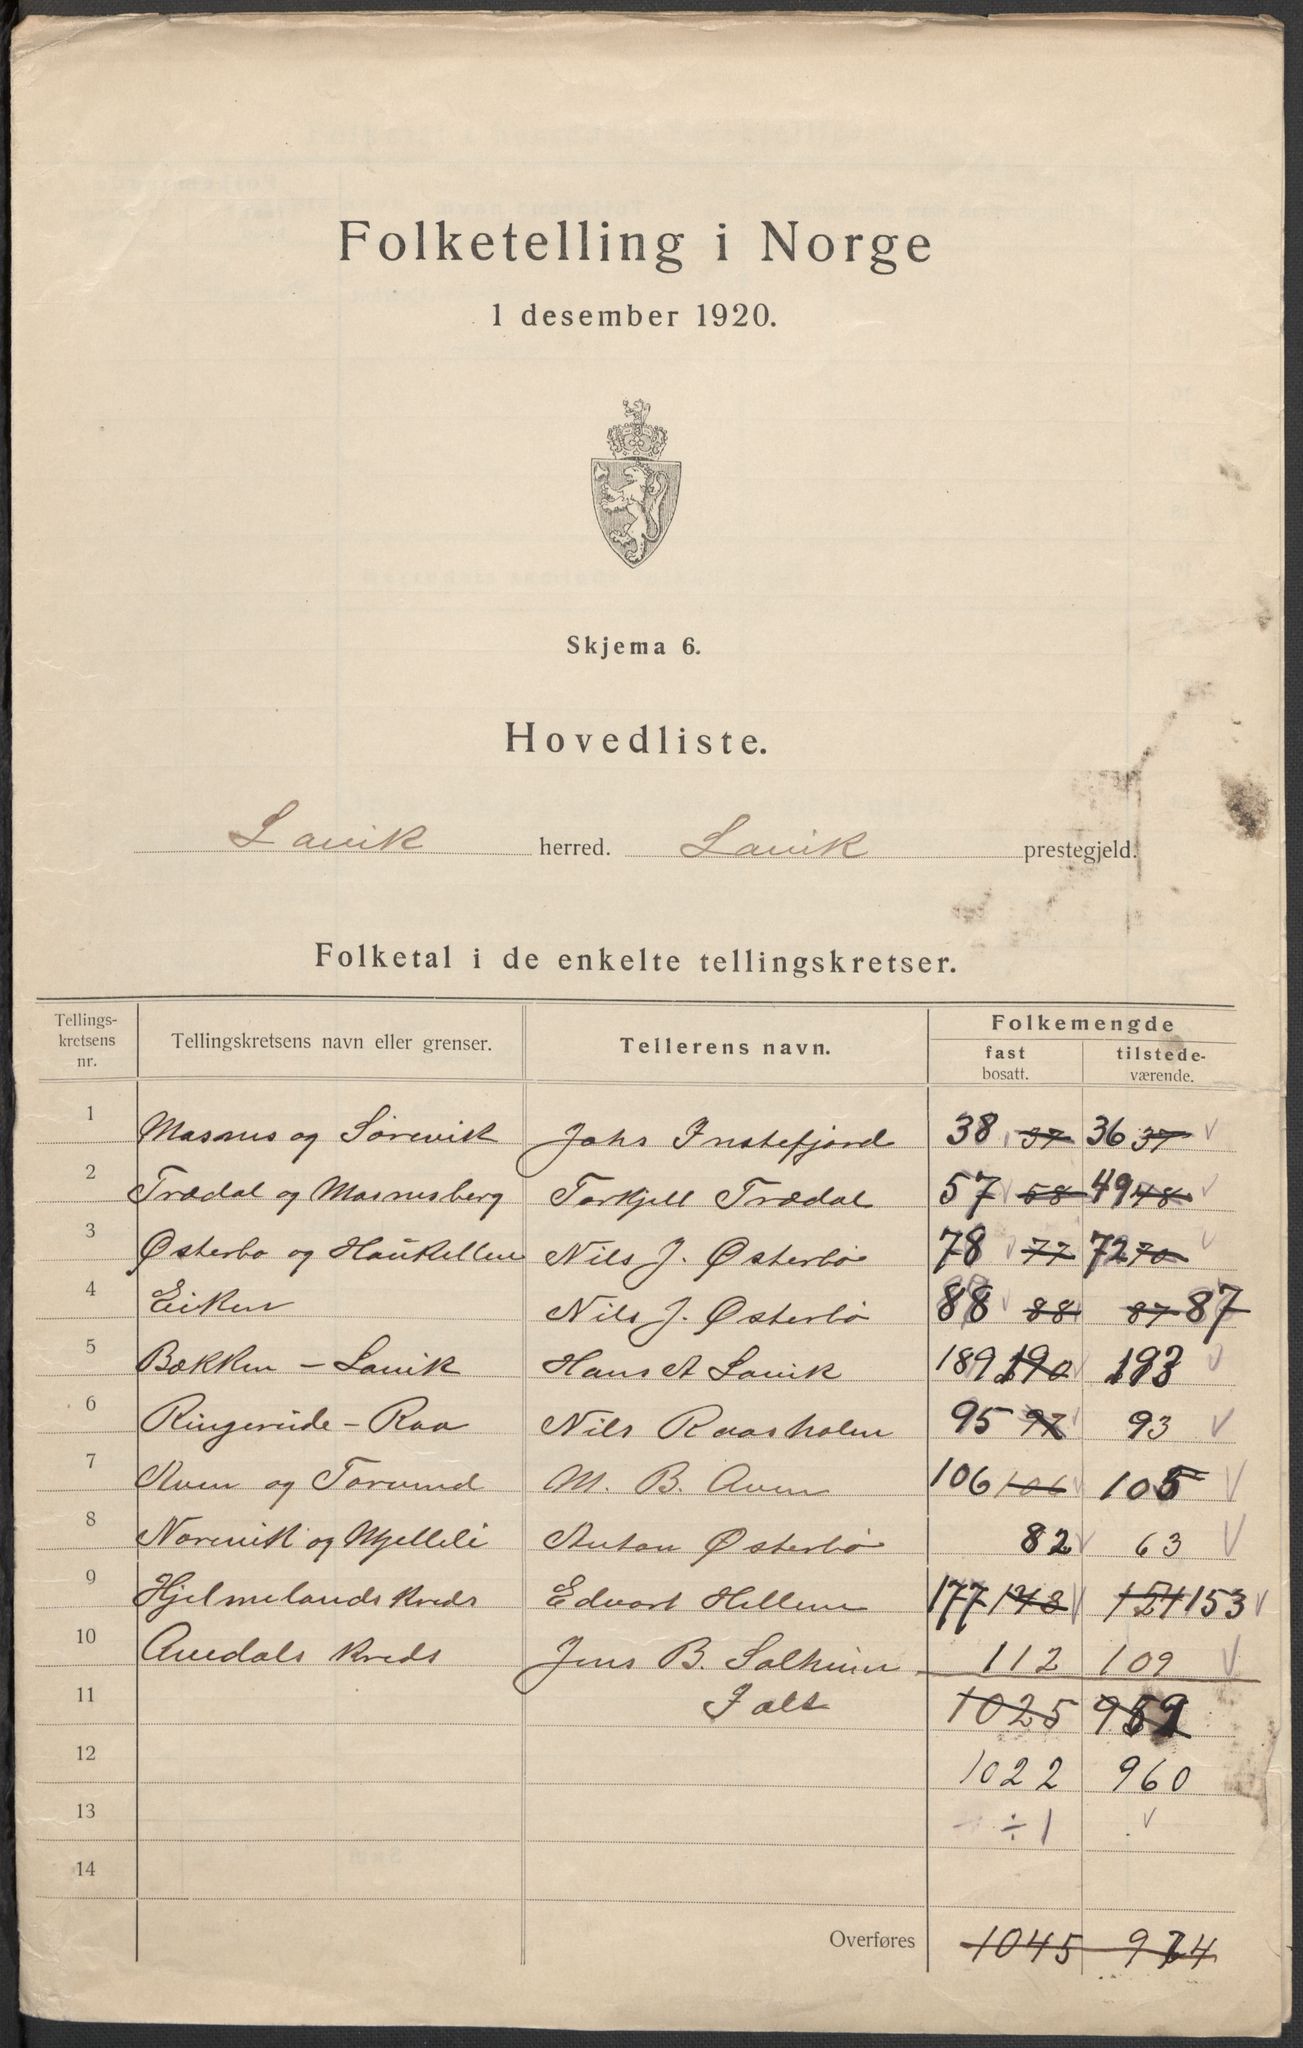 Folketelling i Norge
1 desember 1920.
Skjema 6.
Hovedliste.
Lavik herred. Lavik prestegjeld.
Folketal i de enkelte tellingskretser.
Tellings-
kretsens
nr.
Tellingskretsens navn eller grenser.
Tellerens navn.
Folkemengde
fast
bosatt.
tilstede-
værende.
1 Masnes og Sørevik Johs Instefjord 38 37 36 37
2 Trædal og Masnesberg Torkjell Trædal 57 58 49 48
3 Østerbø og Haukellen Nils J. Østerbø 78 77 72 70
4 Eiken Nils J. Østerbø 88 88 87 87
5 Bækken - Lavik Hans A Lavik 189 190 193
6 Ringereide - Raa Nils Raasholm 95 97 93
7 Aven og Torvund M. B. Aven 106 106 105
8 Norevik og Mjelleli Anton Østerbø 82 63
9 Hjelmelands kreds Edvart Hellem 177 153
10 Avedals kreds Jens B. Solheim 112 109
11 I alt 1025 959
12 1022 960
13 ÷ 1
14
Overføres 1045 974